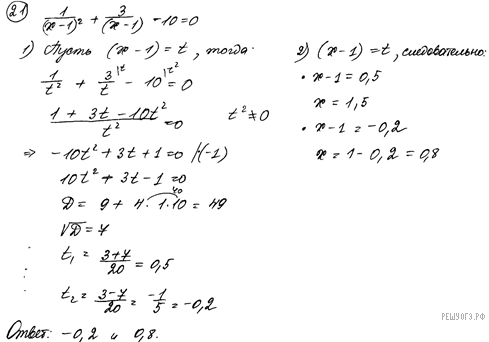 21
1/(x-1)² + 3/(x-1) - 10 = 0
1) Пусть (x-1) = t, тогда:
1/t² + 3/t |t - 10 |t² = 0
(1 + 3t - 10t²)/t² = 0   t² ≠ 0
⇒ -10t² + 3t + 1 = 0 |·(-1)
10t² + 3t - 1 = 0
D = 9 + 4·1·10 = 49
40
√D = 7
t₁ = (3+7)/20 = 0,5
t₂ = (3-7)/20 = -1/5 = -0,2
2) (x-1) = t, следовательно:
• x-1 = 0,5
x = 1,5
• x-1 = -0,2
x = 1-0,2 = 0,8
Ответ: -0,2 и 0,8.
РЕШУОГЭ.РФ